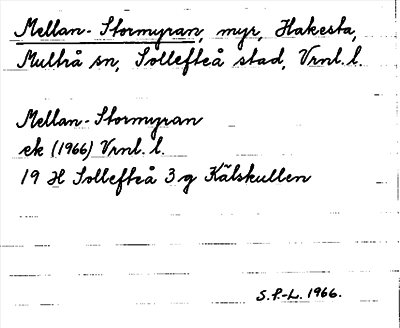 Mellan-Stormyran, myr, Hakesta,
Multrå sn, Sollefteå stad, Vrnl. l.
Mellan-Stormyran
ek (1966) Vrnl. l.
19 H Sollefteå 3 g Kälskullen
S.P.-L. 1966.